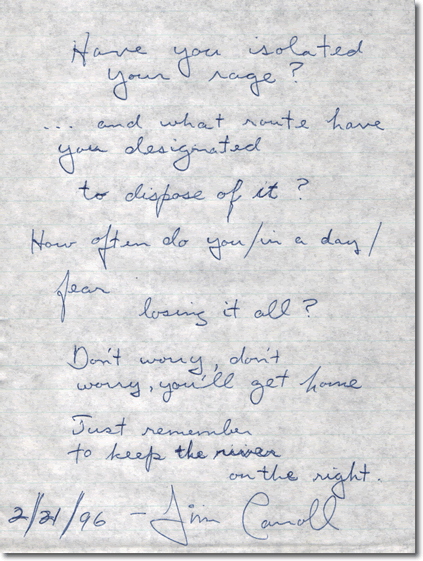 Have you isolated
your rage?
... and what route have
you designated
to dispose of it?
How often do you/in a day/
fear
losing it all?
Don't worry, don't
worry, you'll get home
Just remember
to keep the river
on the right.
2/21/96 - Jim Carroll